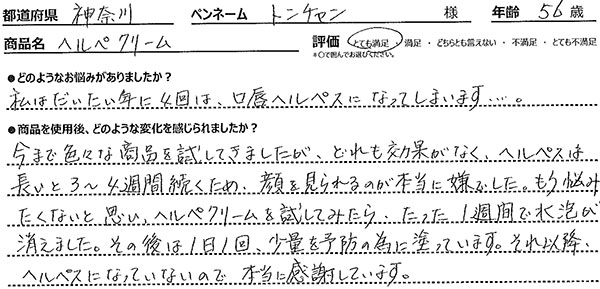 都道府県 神奈川 ペンネーム トンチャン 様 年齢 56 歳
商品名 ヘルペクリーム 評価 とても満足・満足・どちらとも言えない・不満足・とても不満足
※○で囲んでお選びください。
●どのようなお悩みがありましたか？
私はだいたい年に4回は、口唇ヘルペスになってしまいます…。
●商品を使用後、どのような変化を感じられましたか？
今まで色々な商品を試してきましたが、どれも効果がなく、ヘルペスは
長いと3～4週間続くため、顔を見られるのが本当に嫌でした。もう悩み
たくないと思い、ヘルペクリームを試してみたら、たった1週間で水泡が
消えました。その後は1日1回、少量を予防の為に塗っています。それ以降、
ヘルペスになっていないので本当に感謝しています。